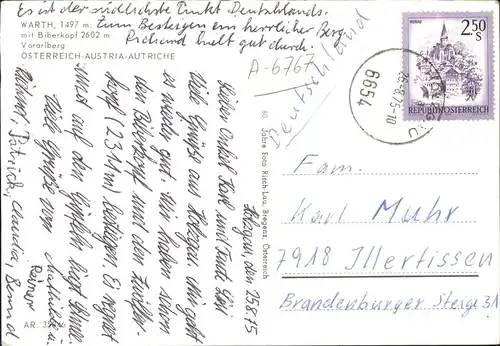 Es ist der südlichste Punkt Deutschlands.
WARTH, 1497 m. Zum Besteigen ein herrlicher Berg.
mit Biberkopf 2602 m
Richard hielt gut durch.
Vorarlberg
ÖSTERREICH-AUSTRIA-AUTRICHE
A-6767
Deutschland
Holzgau, den 25.8.75
Lieber Onkel Karl und Tante Lini
Viele Grüße aus Holzgau, uns geht
es sehr gut, wir haben schon
den Biberkopf und den
kopf (2311m) bestiegen. Es regnet
sonst auf den Gipfeln liegt Schnee
Viele Grüße von
Rainer, Patrick, Claudia, Bernd
AR.
80 Jahre Foto Risch-Lau, Bregenz, Österreich
MURAU
2.50
S
REPUBLIK ÖSTERREICH
6654
-8.75-10
Fam.
Karl Muhr
7918 Illertissen
Brandenburger Steige 31